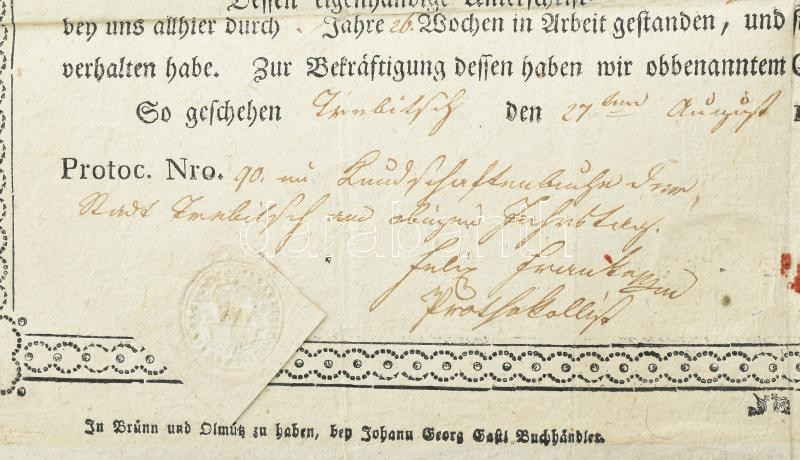 Dessen eigenhändige Unterschrift
bey uns allhier durch . Jahre 26. Wochen in Arbeit gestanden, und
verhalten habe. Zur Bekräftigung dessen haben wir obbenanntem
So geschehen Trebitsch den 27ten August
Protoc. Nro. 90. im Kundschaftenbuche der
Stadt Trebitsch am obigen Jahrstag.
Felix Franke
Prothokollist
darabanth
In Brünn und Olmütz zu haben, bey Johann Georg Gastl Buchhändler.